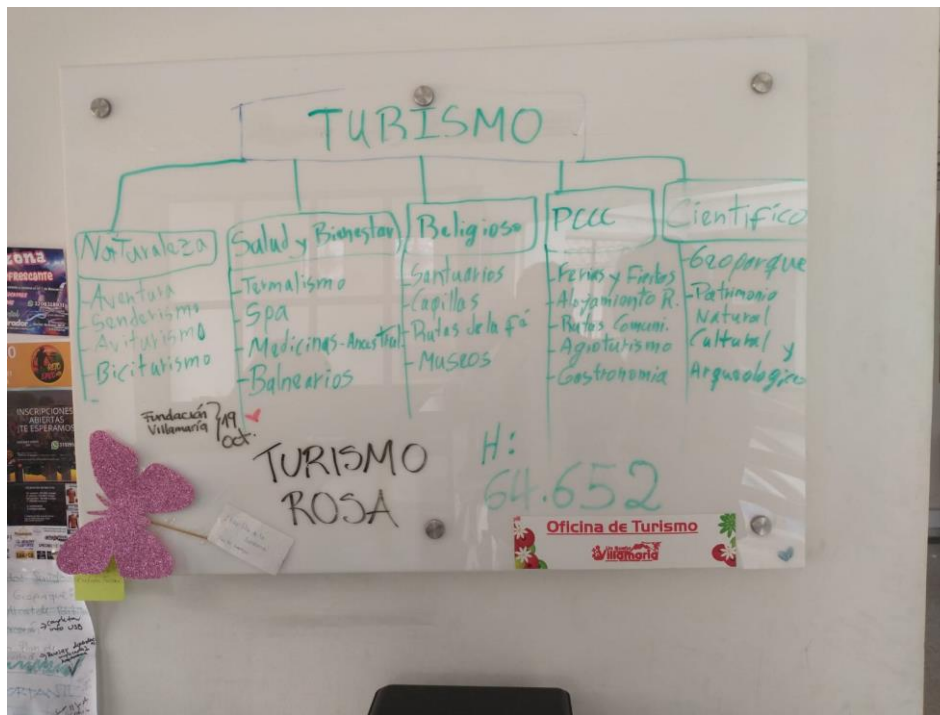 TURISMO
Naturaleza
- Aventura
- Senderismo
- Aviturismo
- Biciturismo
Salud y Bienestar
- Termalismo
- Spa
- Medicinas-Ancestral
- Balnearios
Religioso
- Santuarios
- Capillas
- Rutas de la fé
- Museos
PCCC
- Ferias y Fiestas
- Alojamiento R.
- Rutas Comuni.
- Agroturismo
- Gastronomia
Científico
- Geoparque
- Patrimonio
Natural
Cultural y
Arqueologico
Fundación
Villamaría
19
oct.
TURISMO
ROSA
H:
64.652
Oficina de Turismo
Villamaría
zona
INSCRIPCIONES
ABIERTAS
¡TE ESPERAMOS